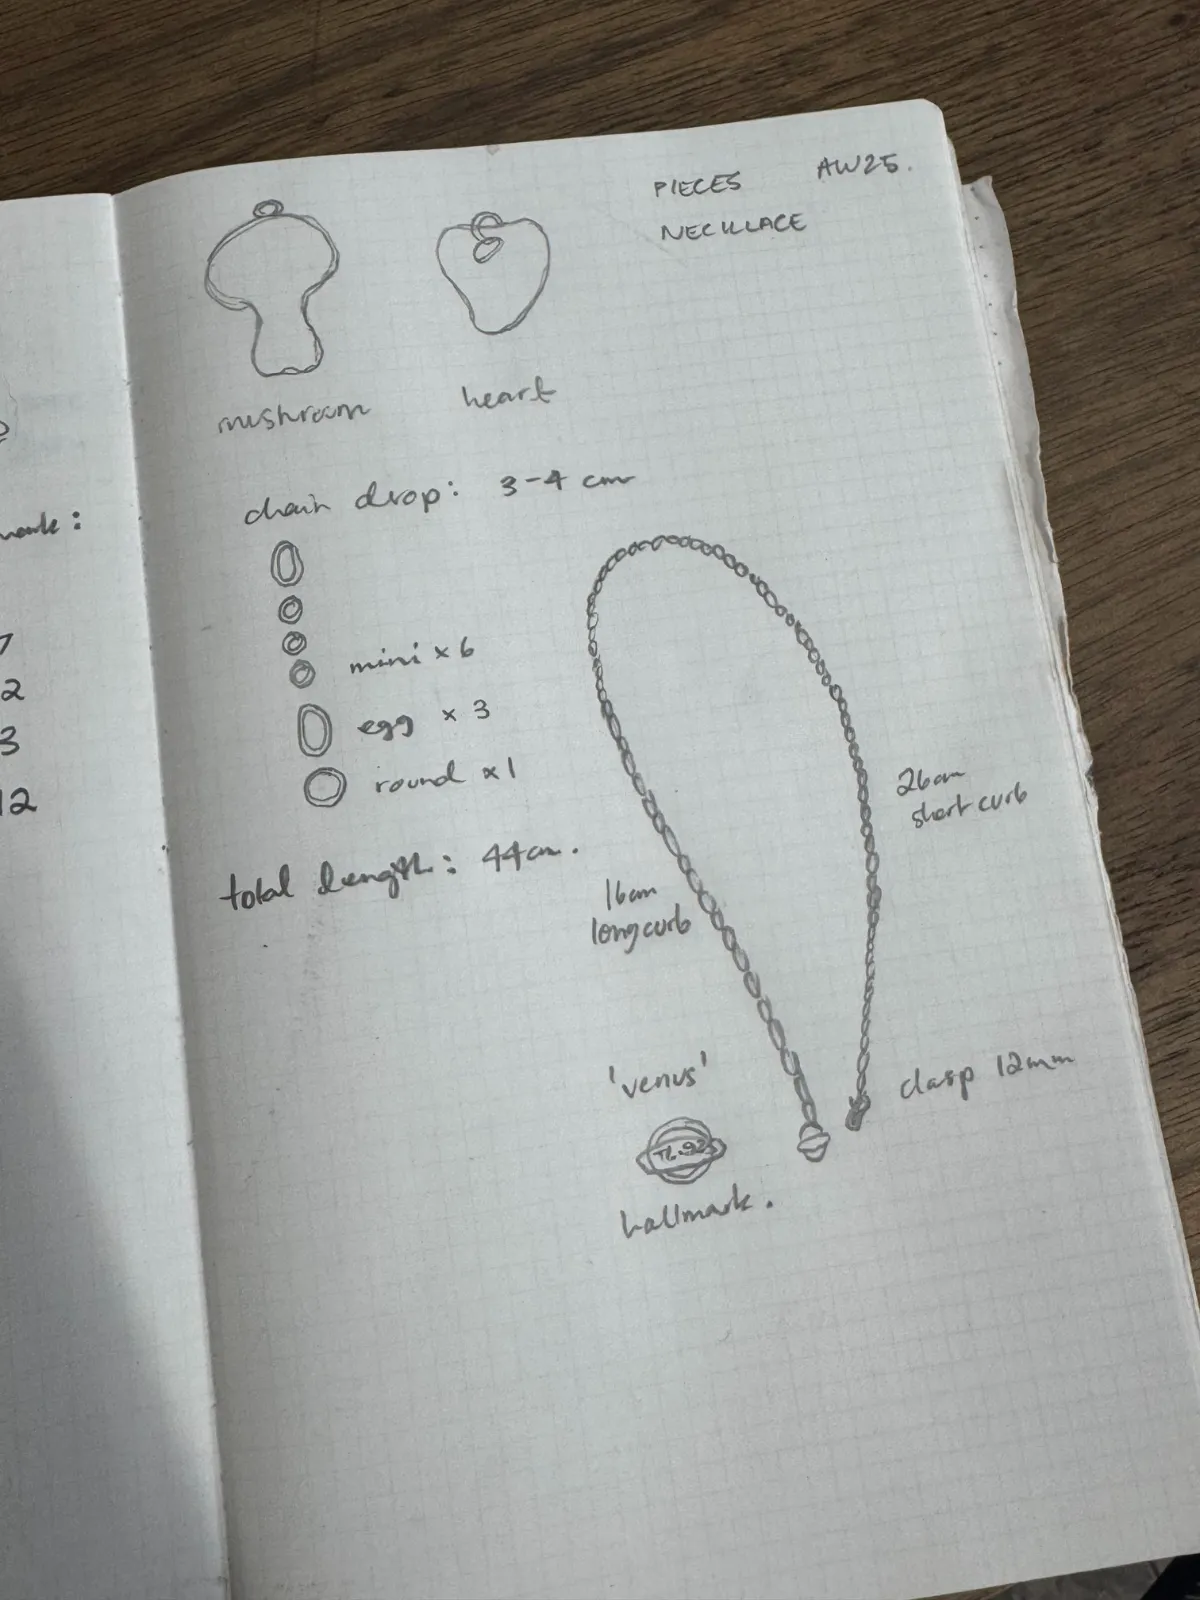 PIECES AW25.
NECKLACE
mushroom
heart
chain drop: 3-4 cm
mini x 6
egg x 3
round x 1
total length: 44cm.
26cm
short curb
16cm
long curb
clasp 12mm
'venus'
hallmark.
7
2
3
12